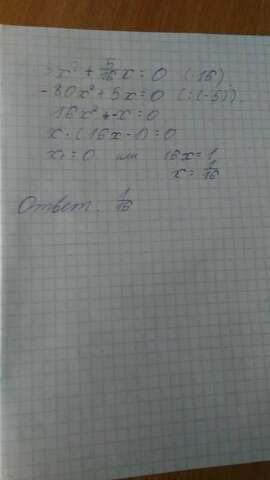 x² + 5/16x = 0 (·16)
- 80x² + 5x = 0 (:(-5))
16x² - x = 0
x · (16x - 1) = 0
x₁ = 0 или 16x = 1
x = 1/16
Ответ. 1/16